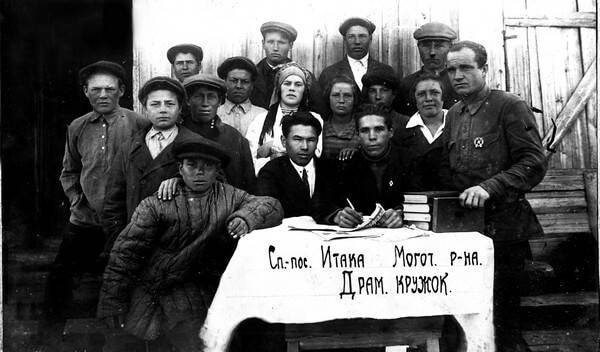 Сп.-пос. Итака Могот. р-на.
Драм. кружок.